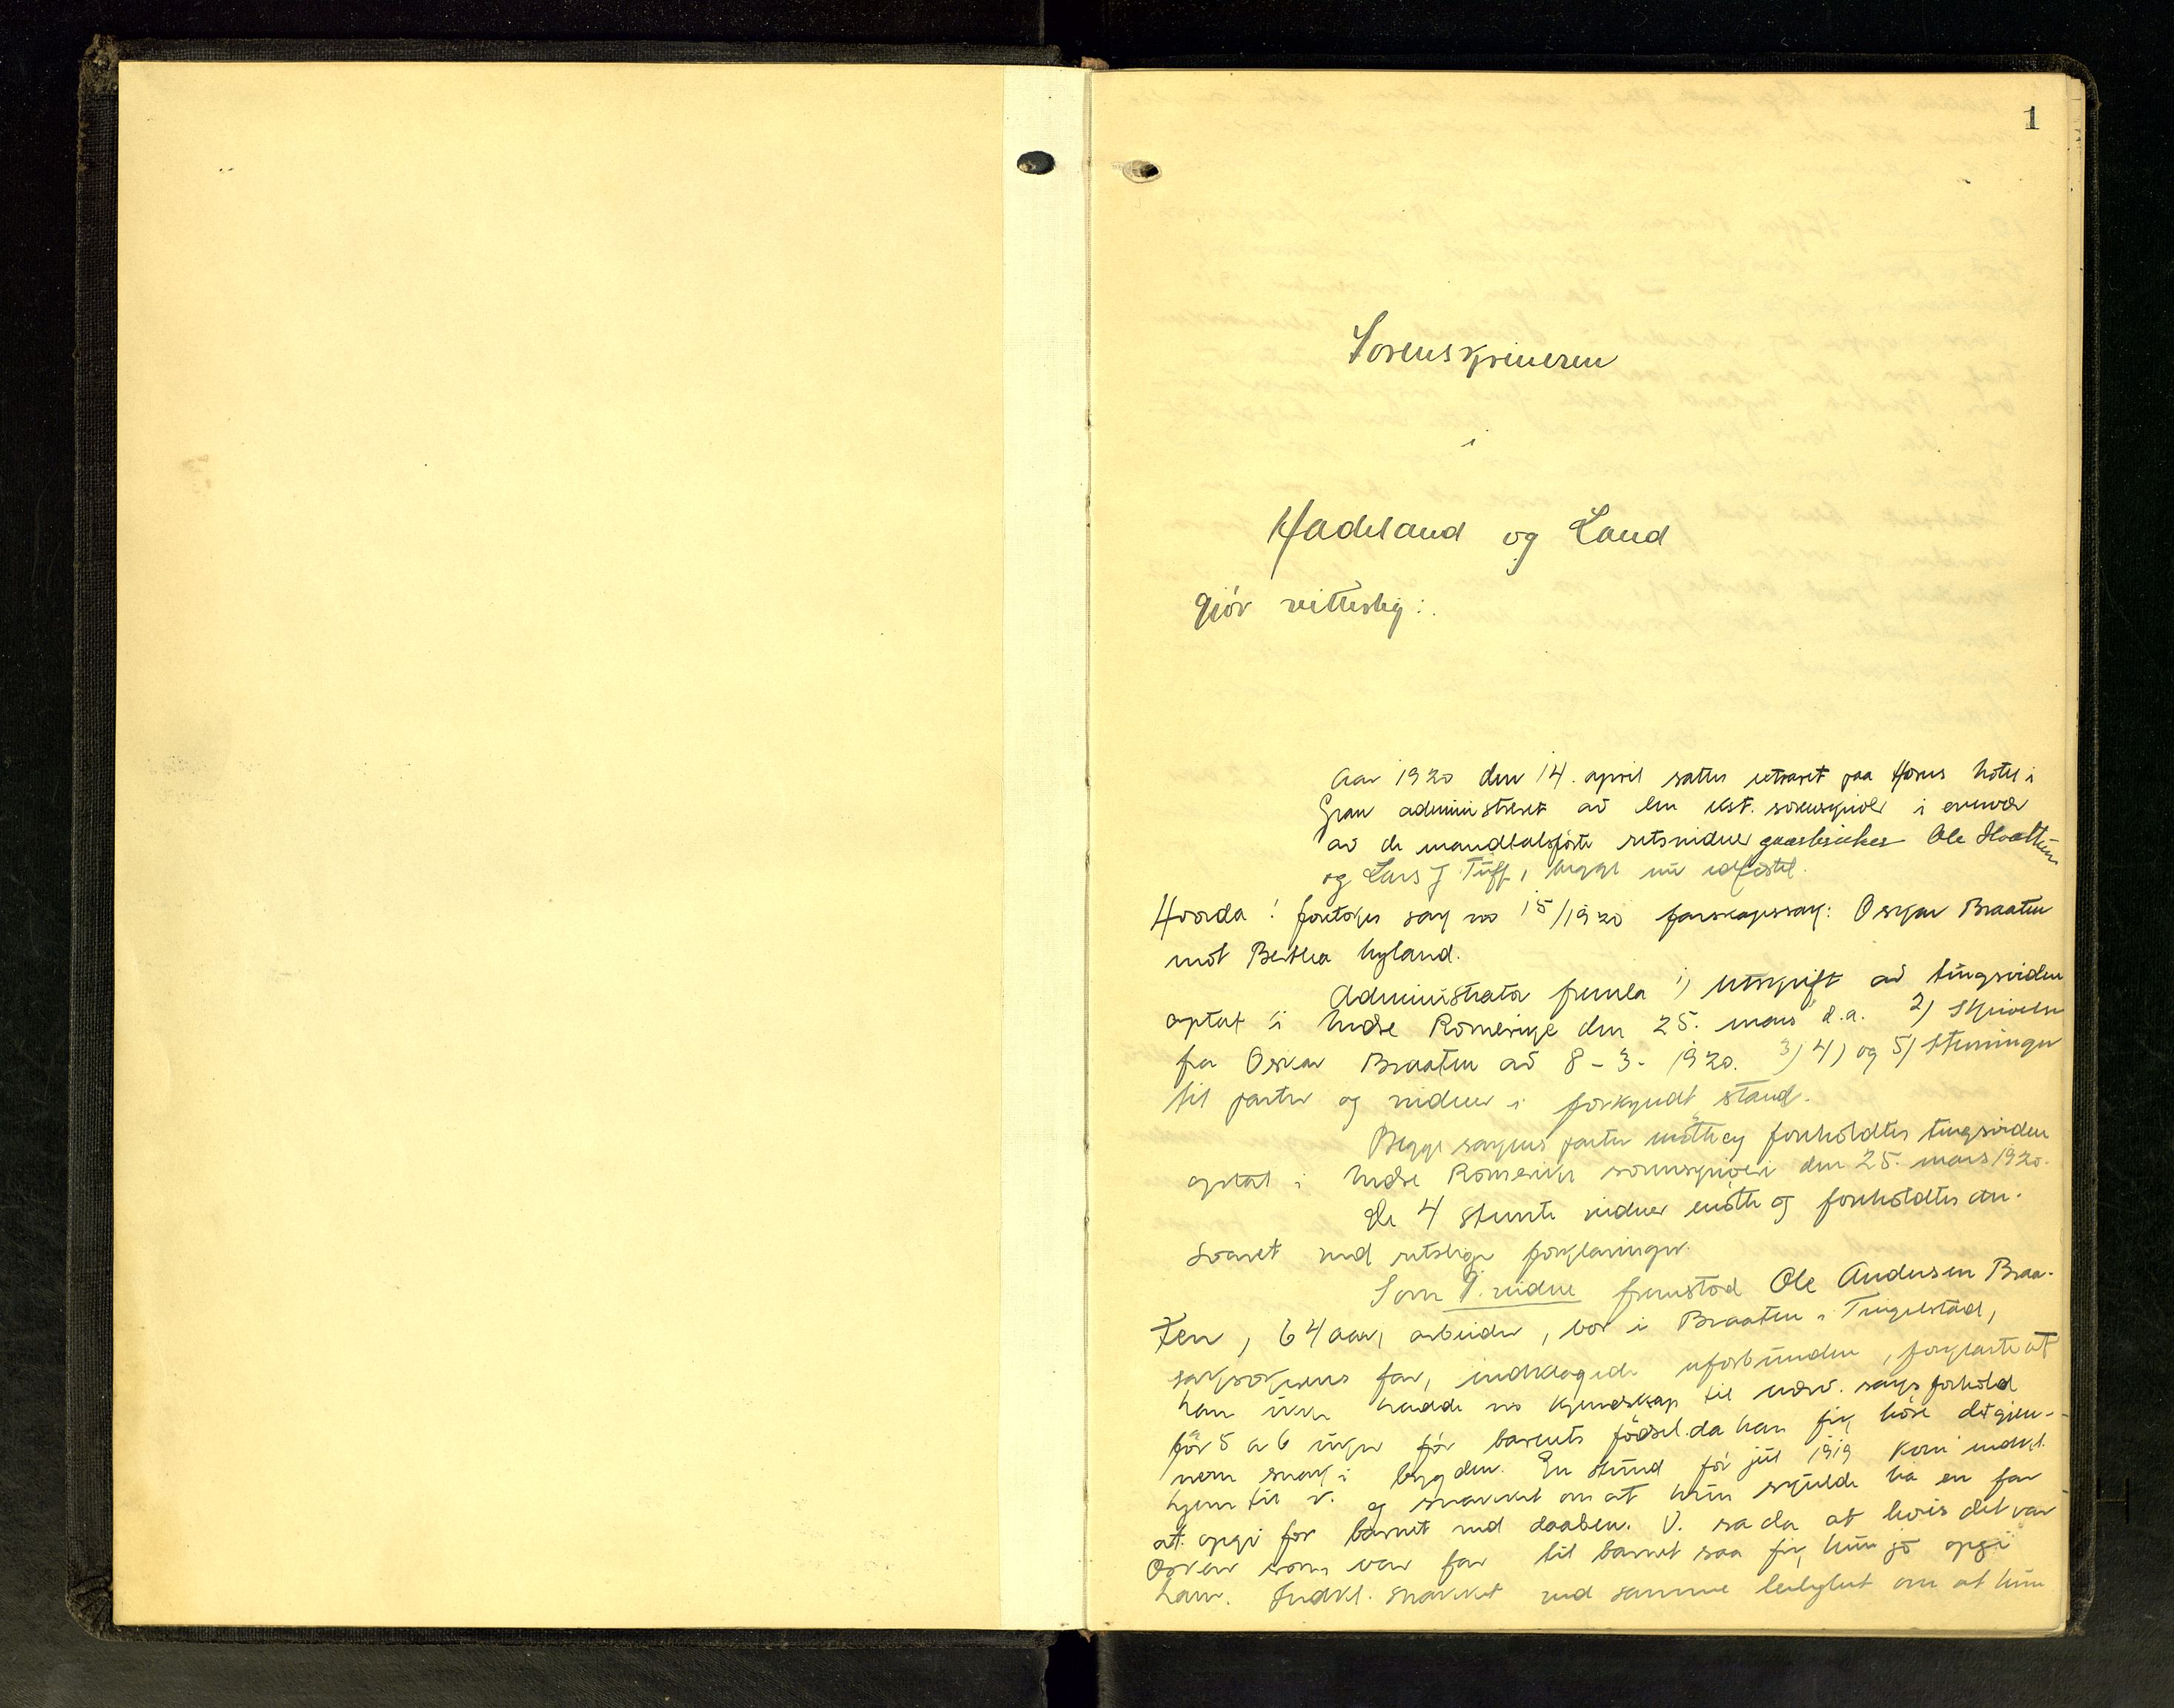 1
Sorenskriveren
i
Hadeland og Land
gjør vitterlig:
Aar 1920 den 14. april sattes extraret paa hotel i
Gran administreret av den kst. sorenskriver i overvær
av de mandtalsførte retsvidner gaardbruker Ole Hvattum
og Lars J. Tuff, begge nu edfæstet.
Hvorda: foretoges sag no 15/1920 farskapssak: Oskar Braaten
mot Bertha Nyland.
Administrator fremla 1) utskrift av tingsvidne
optat i Nedre Romerike den 25. mars d.a. 2) Skrivelse
fra Oskar Braaten av 8-3-1920. 3) 4) og 5) stevninger
til parter og vidner i forkyndt stand.
Begge sakens parter møtte og foreholdtes tingsvidne
optat i Nedre Romerike sorenskriveri den 25. mars 1920.
De 4 stevnte vidner møtte og foreholdtes an-
svaret ved retslige forklaringer.
Som 1. vidne fremstod Ole Andersen Braa-
ten, 64 aar, arbeider, bor i Braaten i Tingelstad,
saksøkerens far, indklagede uforbunden, forklarte at
han ikke hadde no kjendskap til nærv. saks forhold
før 5 a 6 uker før barnets fødsel. da han fik høre det gjen-
nem snak i bygden. En stund før jul 1919 kom indkl.
hjem til v. og snakket om at hun skulde ha en far
at opgi for barnet ved daaben. V. sa da at hvis det var
Oskar som var far til barnet saa fik hun jo opgi
ham. Indkl. snakket ved samme leilighet om at hun